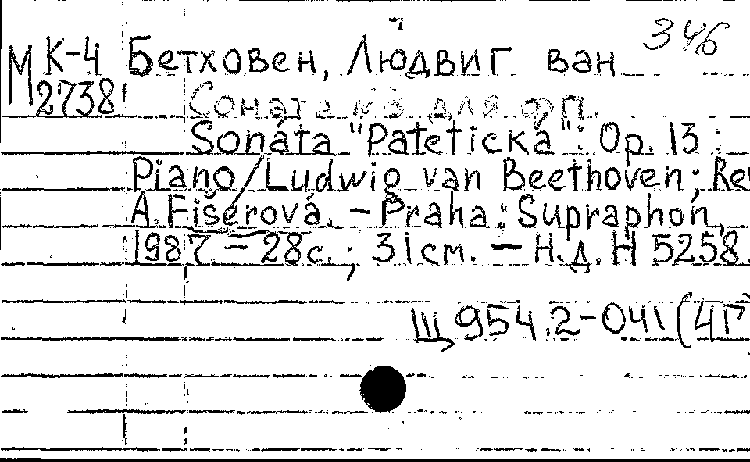 346
М К-4 Бетховен, Людвиг ван
2738 Соната №8 для фп.
Sonáta "Patetická": Op. 13:
Piano/Ludwig van Beethoven; Re
A. Fišerová. – Praha: Supraphon,
1987. – 28с.; 31см. – Н.д. H 5258.
Щ 954.2-041 (4Г